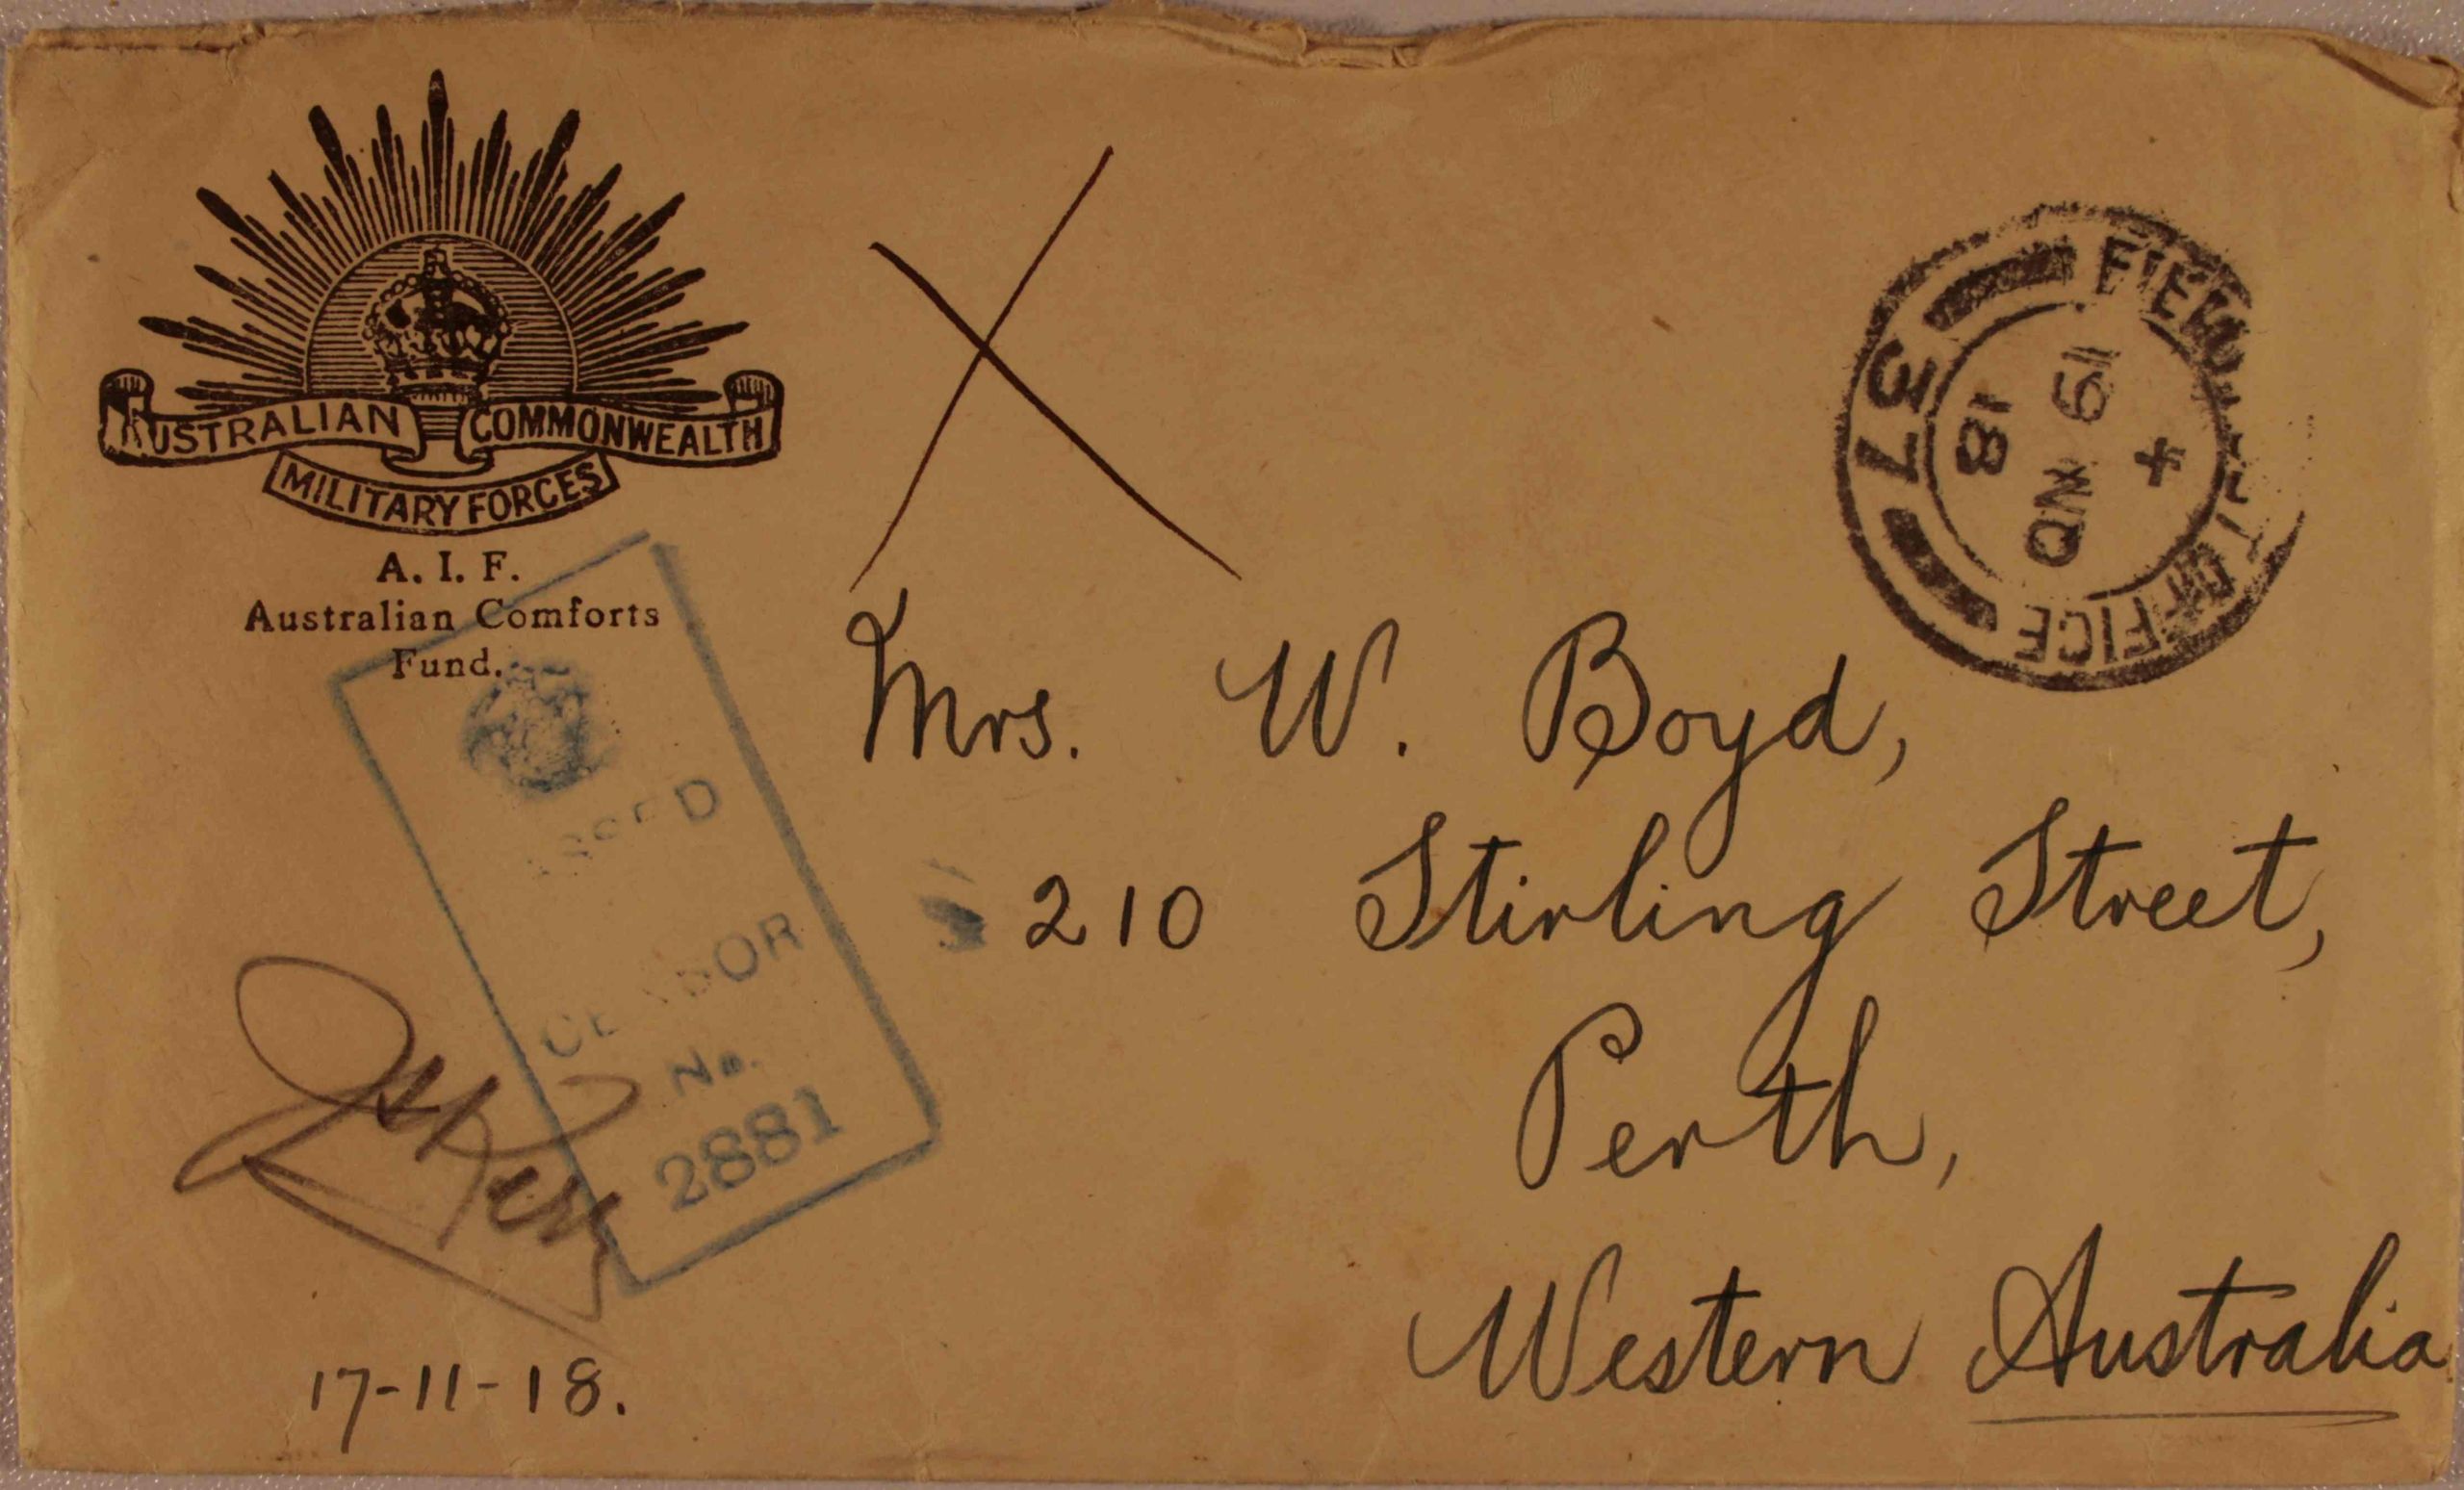 AUSTRALIAN COMMONWEALTH
MILITARY FORCES
A. I. F.
Australian Comforts
Fund.
FIELD POST OFFICE
37
19 NO
18
CENSOR
No.
2881
Mrs. W. Boyd,
210 Stirling Street,
Perth,
Western Australia
17-11-18.